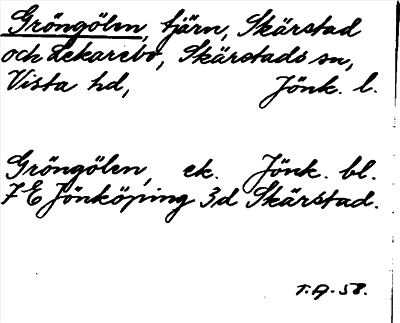 Gröngölen, tjärn, Skärstad
och Lekarebo, Skärstads sn,
Vista hd, Jönk. l.
Gröngölen, ek. Jönk. bl.
7 E Jönköping 3d Skärstad.
T.A. 58.